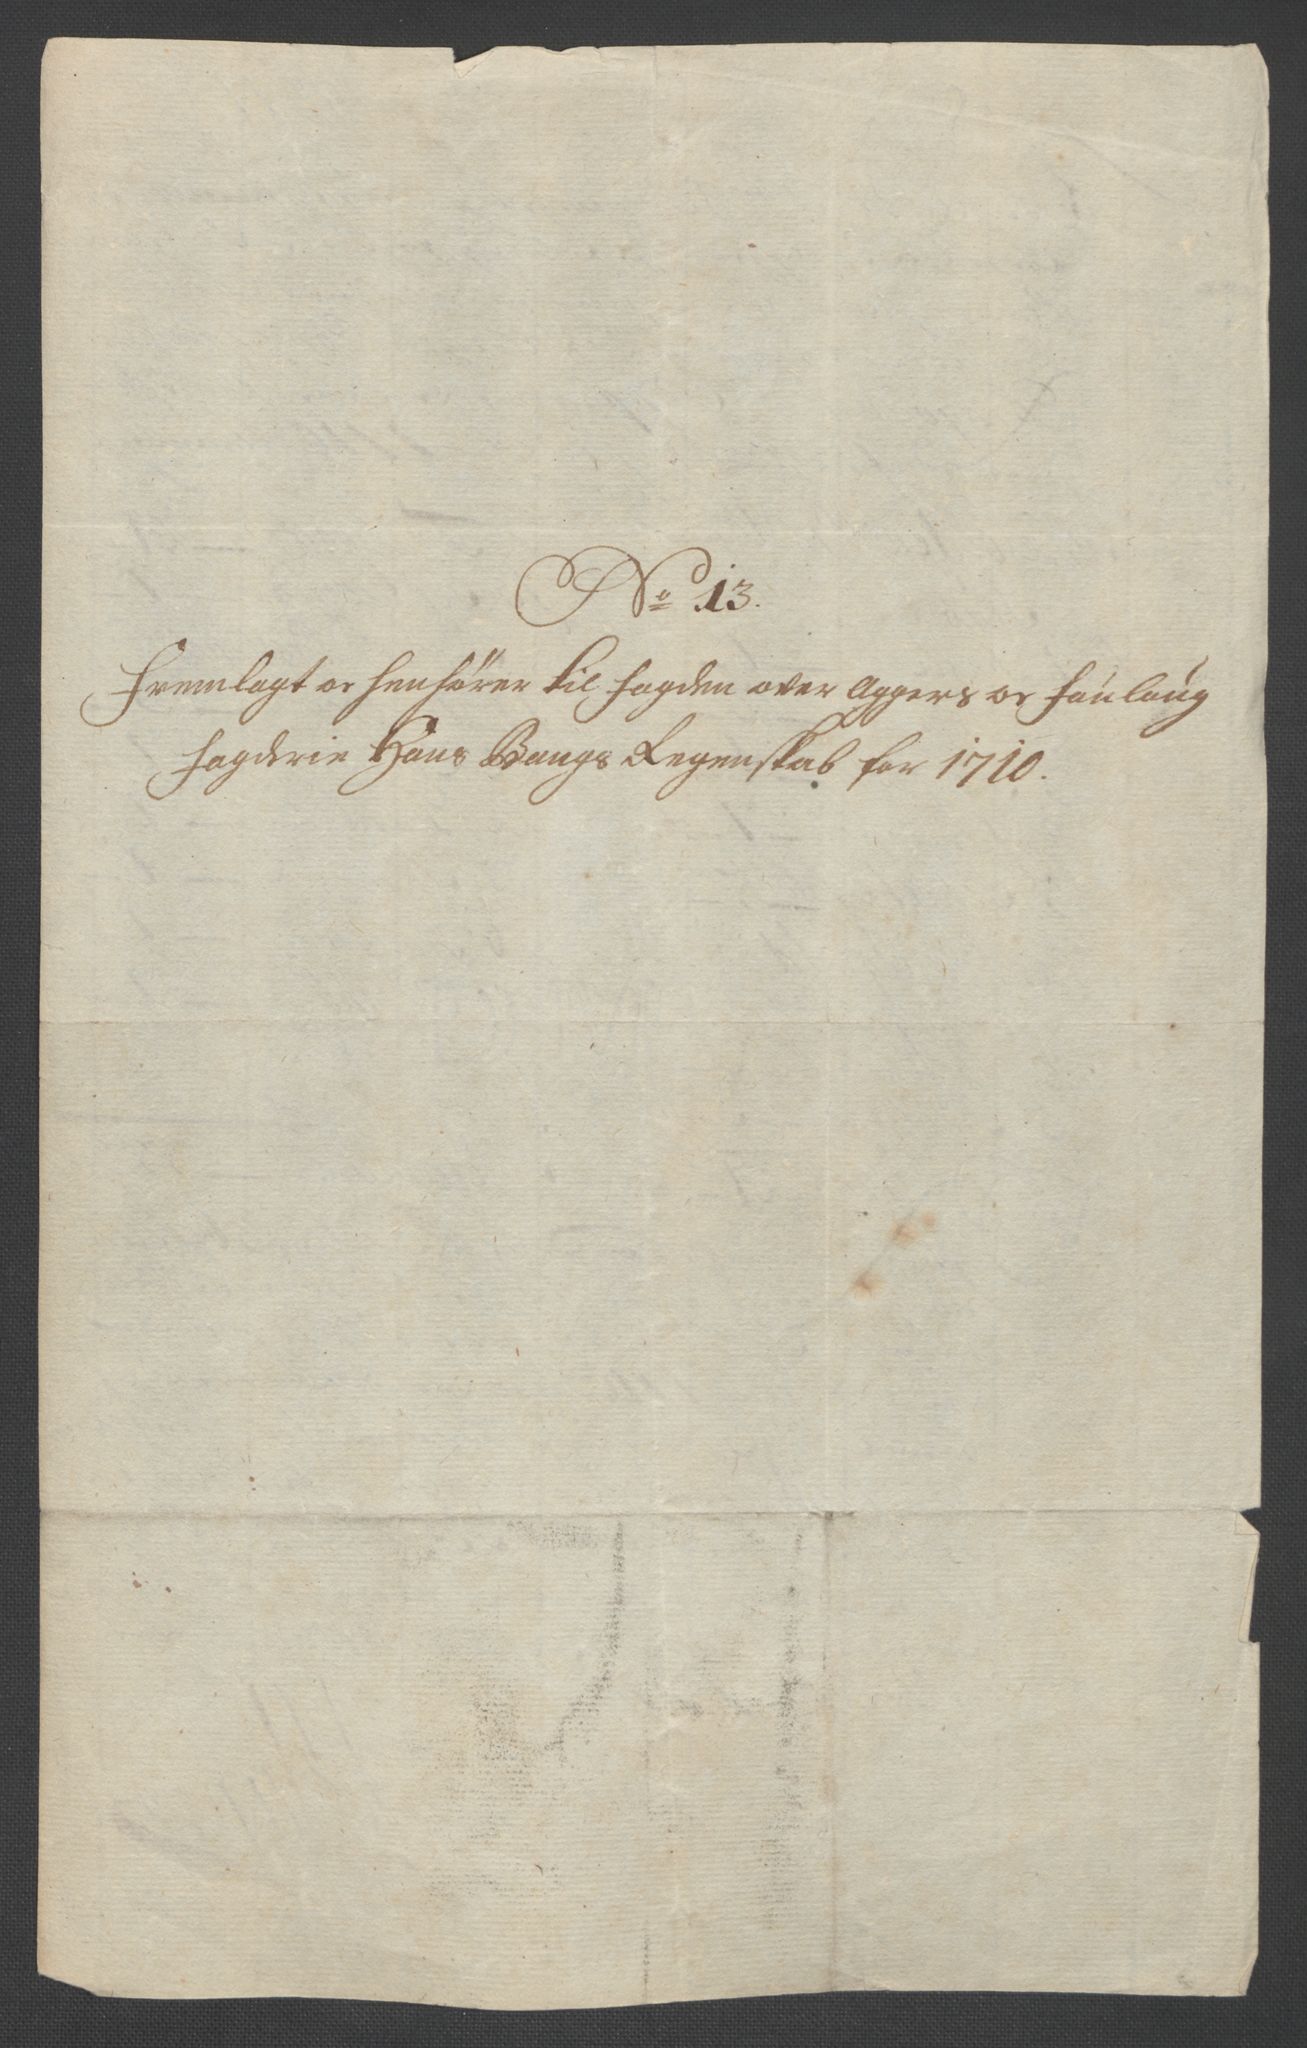 No 13.
Fremlagt og henhører til fogden over Aggers og Folloug
fogderie Hans Bangs Regenskab for 1710.